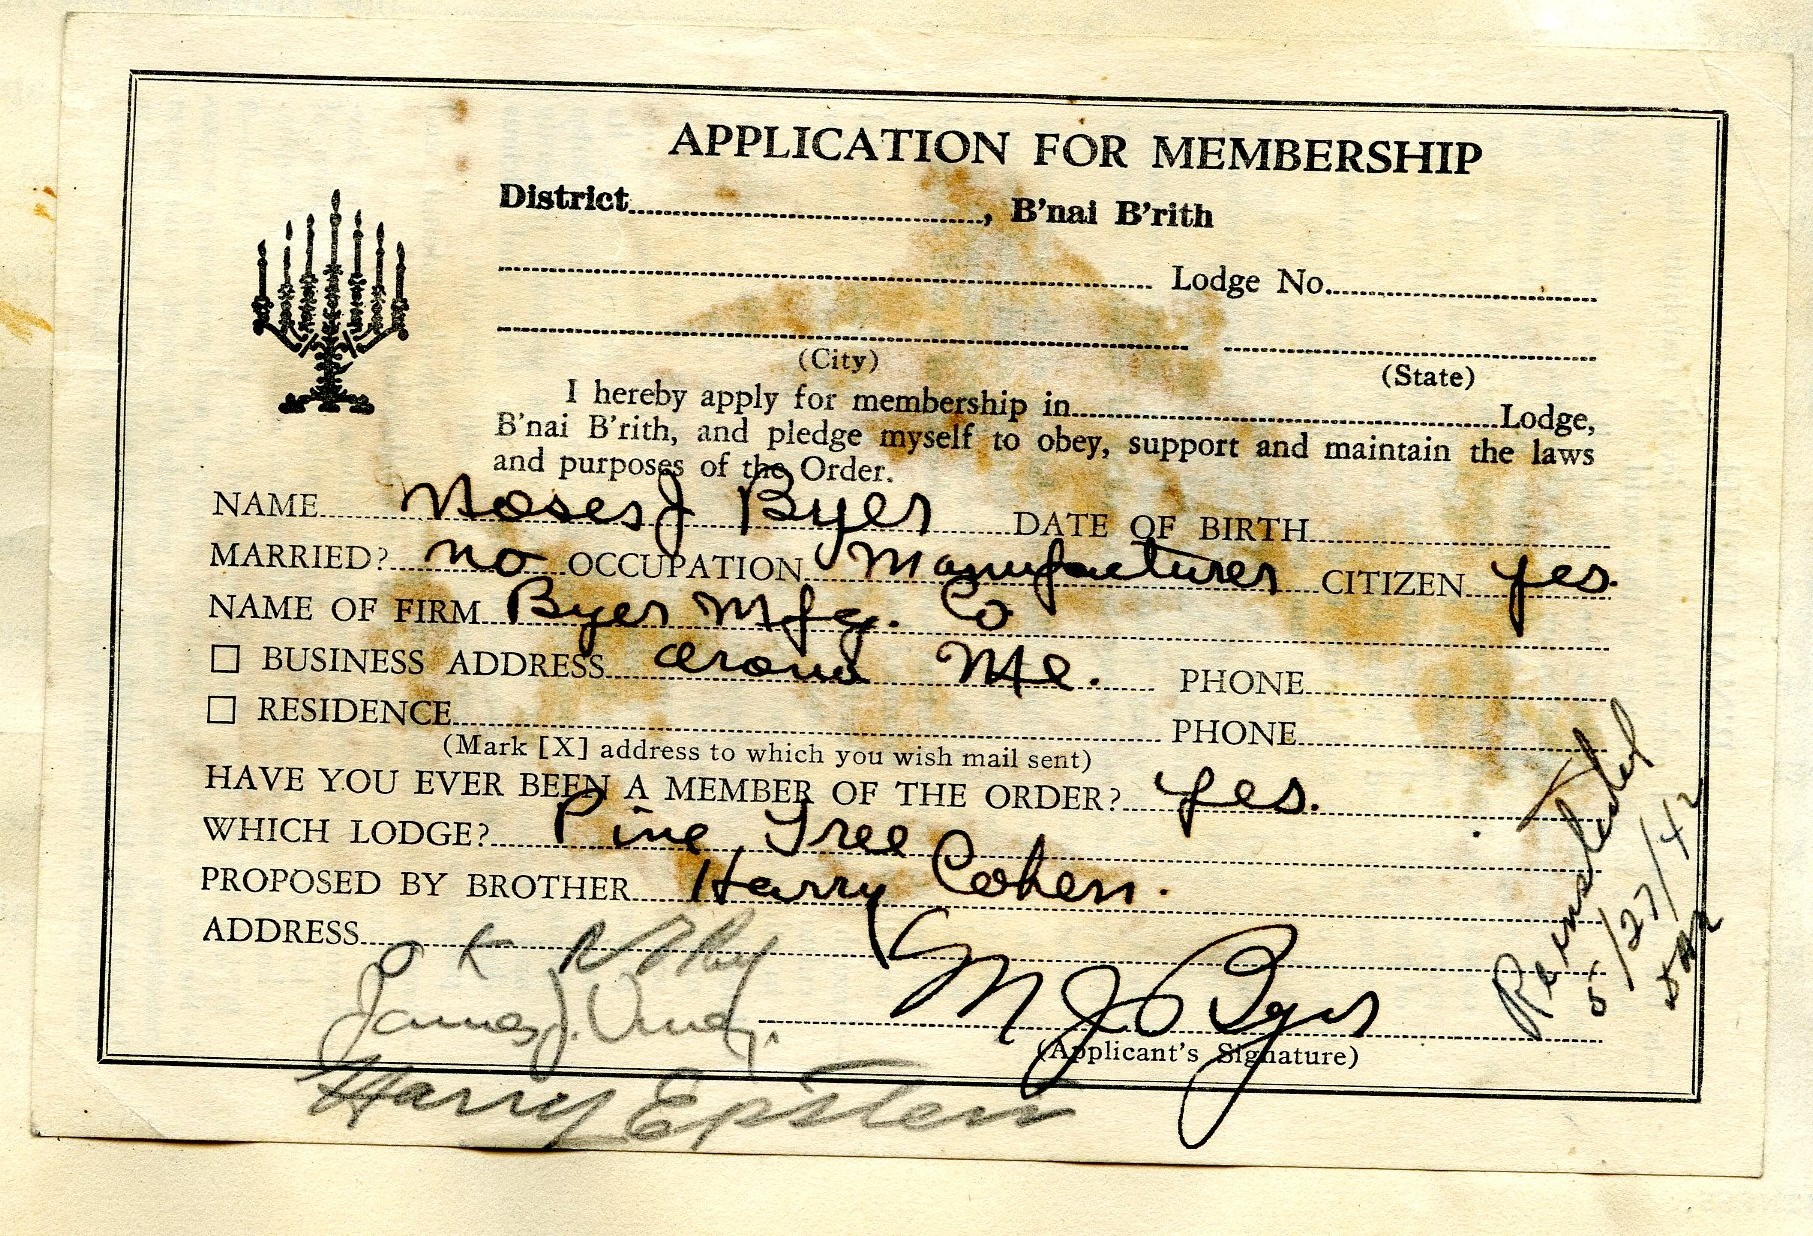 APPLICATION FOR MEMBERSHIP
District, B'nai B'rith
Lodge No.
(City) (State)
I hereby apply for membership in Lodge,
B'nai B'rith, and pledge myself to obey, support and maintain the laws
and purposes of the Order.
NAME Moses J Byer DATE OF BIRTH
MARRIED? no OCCUPATION Manufacturer CITIZEN yes.
NAME OF FIRM Byer Mfg. Co
BUSINESS ADDRESS Orono Me. PHONE
RESIDENCE PHONE
(Mark [X] address to which you wish mail sent)
HAVE YOU EVER BEEN A MEMBER OF THE ORDER? yes.
WHICH LODGE? Pine Tree
PROPOSED BY BROTHER Harry Cohen.
ADDRESS
O K
James J.
M J Byer
(Applicant's Signature)
Harry Epstein
Reinstated
5/27/42